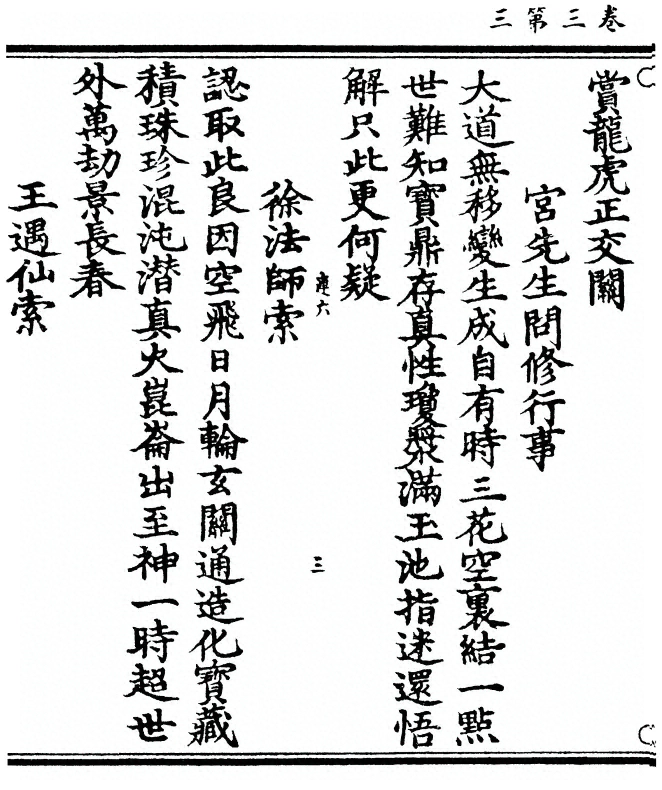 卷三第三
賞龍虎正交關
宮先生問修行事
大道無移變生成自有時三花空裏結一點
世難知寶鼎存真性瓊漿滿玉池指迷還悟
解只此更何疑
三
徐法師索
認取此良因空飛日月輪玄關通造化寶藏
積珠珍混沌潛真火崑崙出至神一時超世
外萬劫景長春
王遇仙索